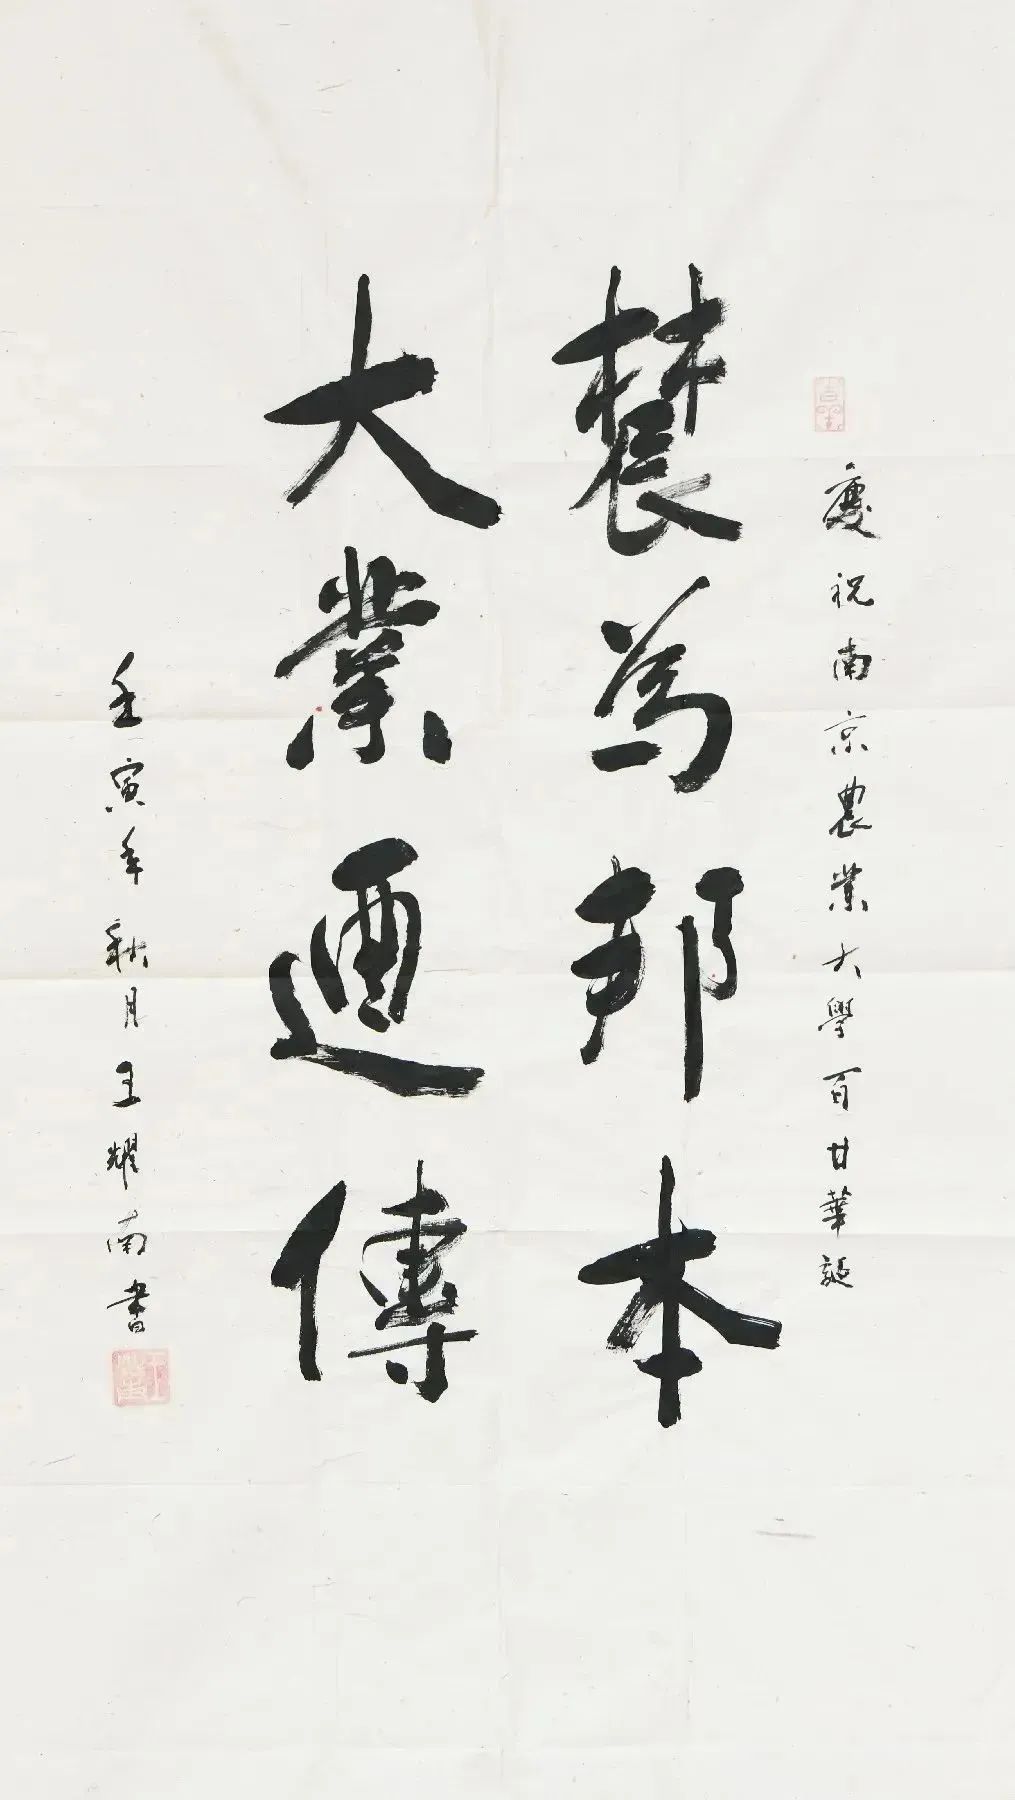 慶祝南京農業大學百廿華誕
辳為邦本
大業迺傳
壬寅年秋月王耀南書